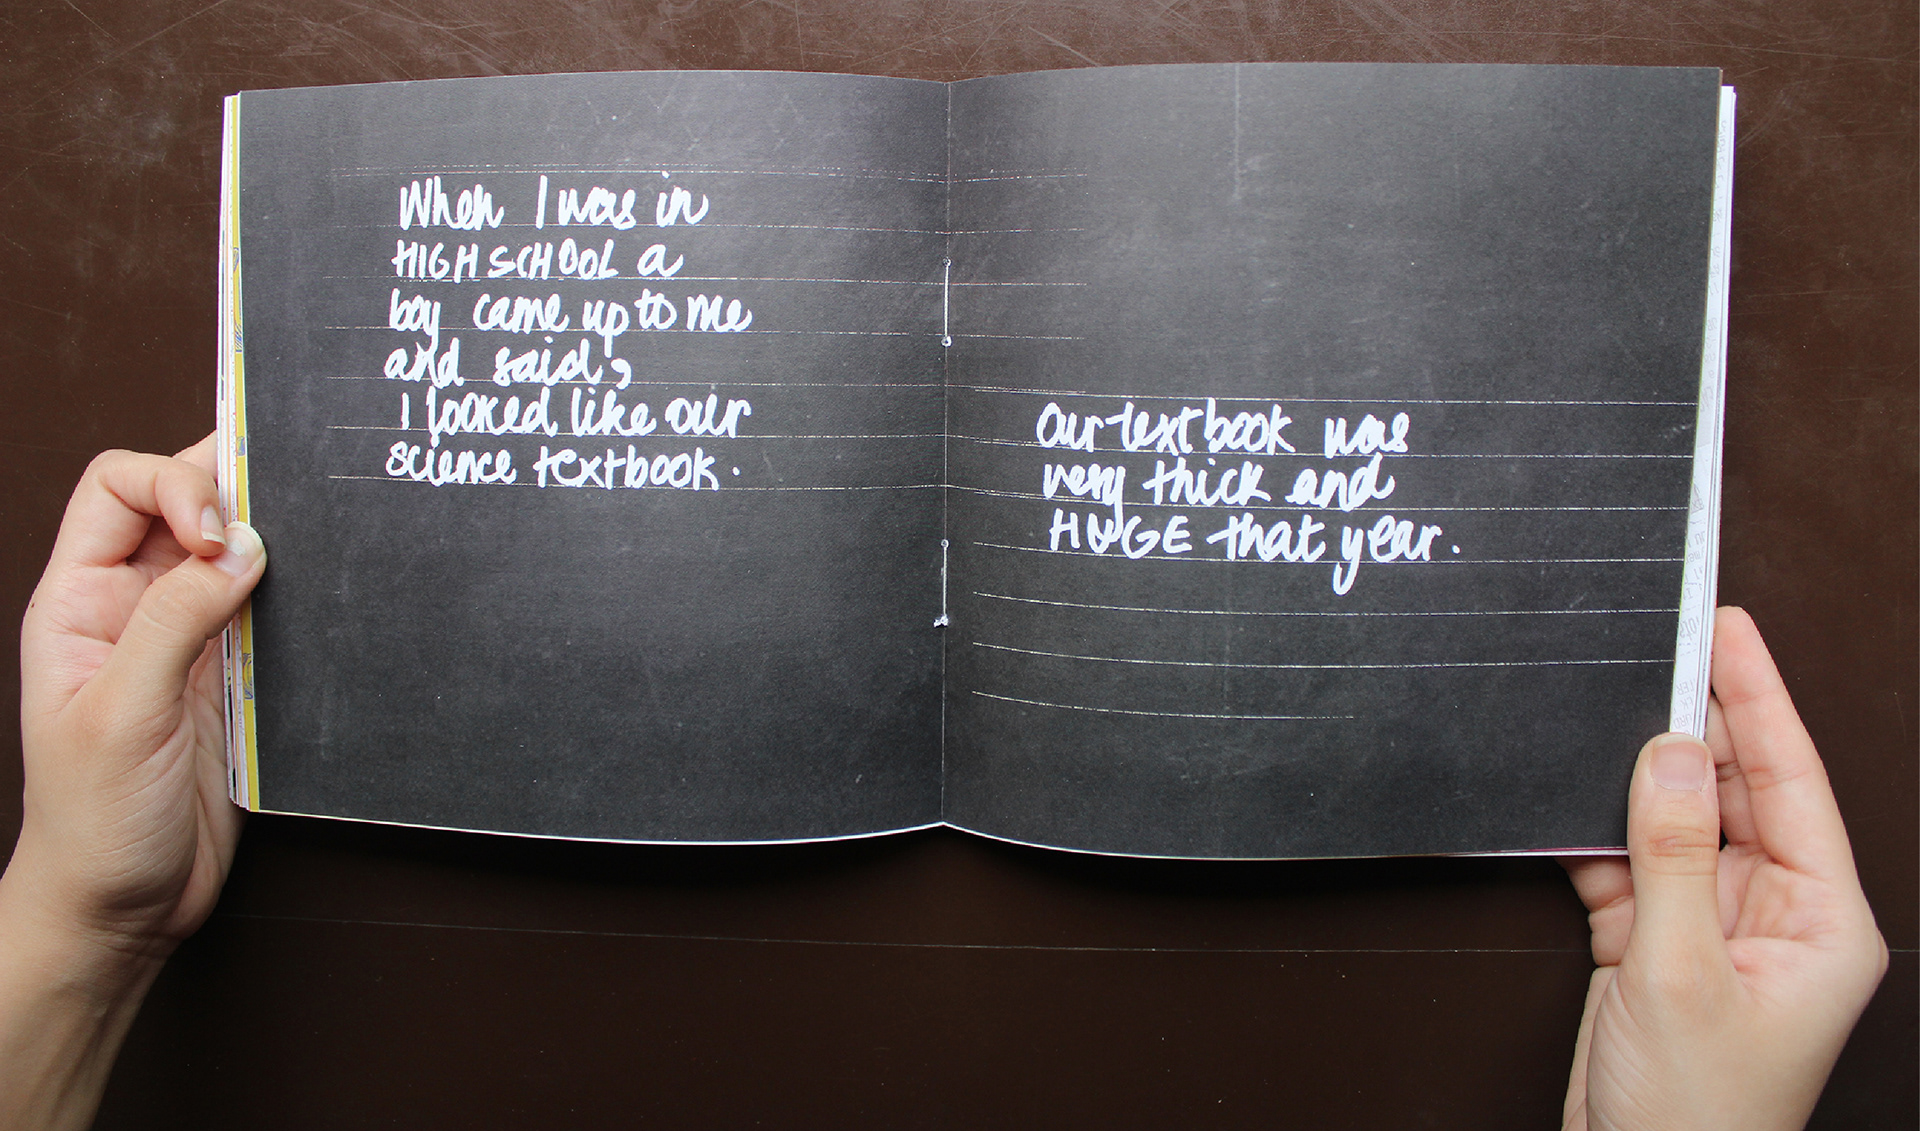 When I was in
HIGH SCHOOL a
boy came up to me
and said,
I looked like our
science textbook.
Our textbook was
very thick and
HUGE that year.